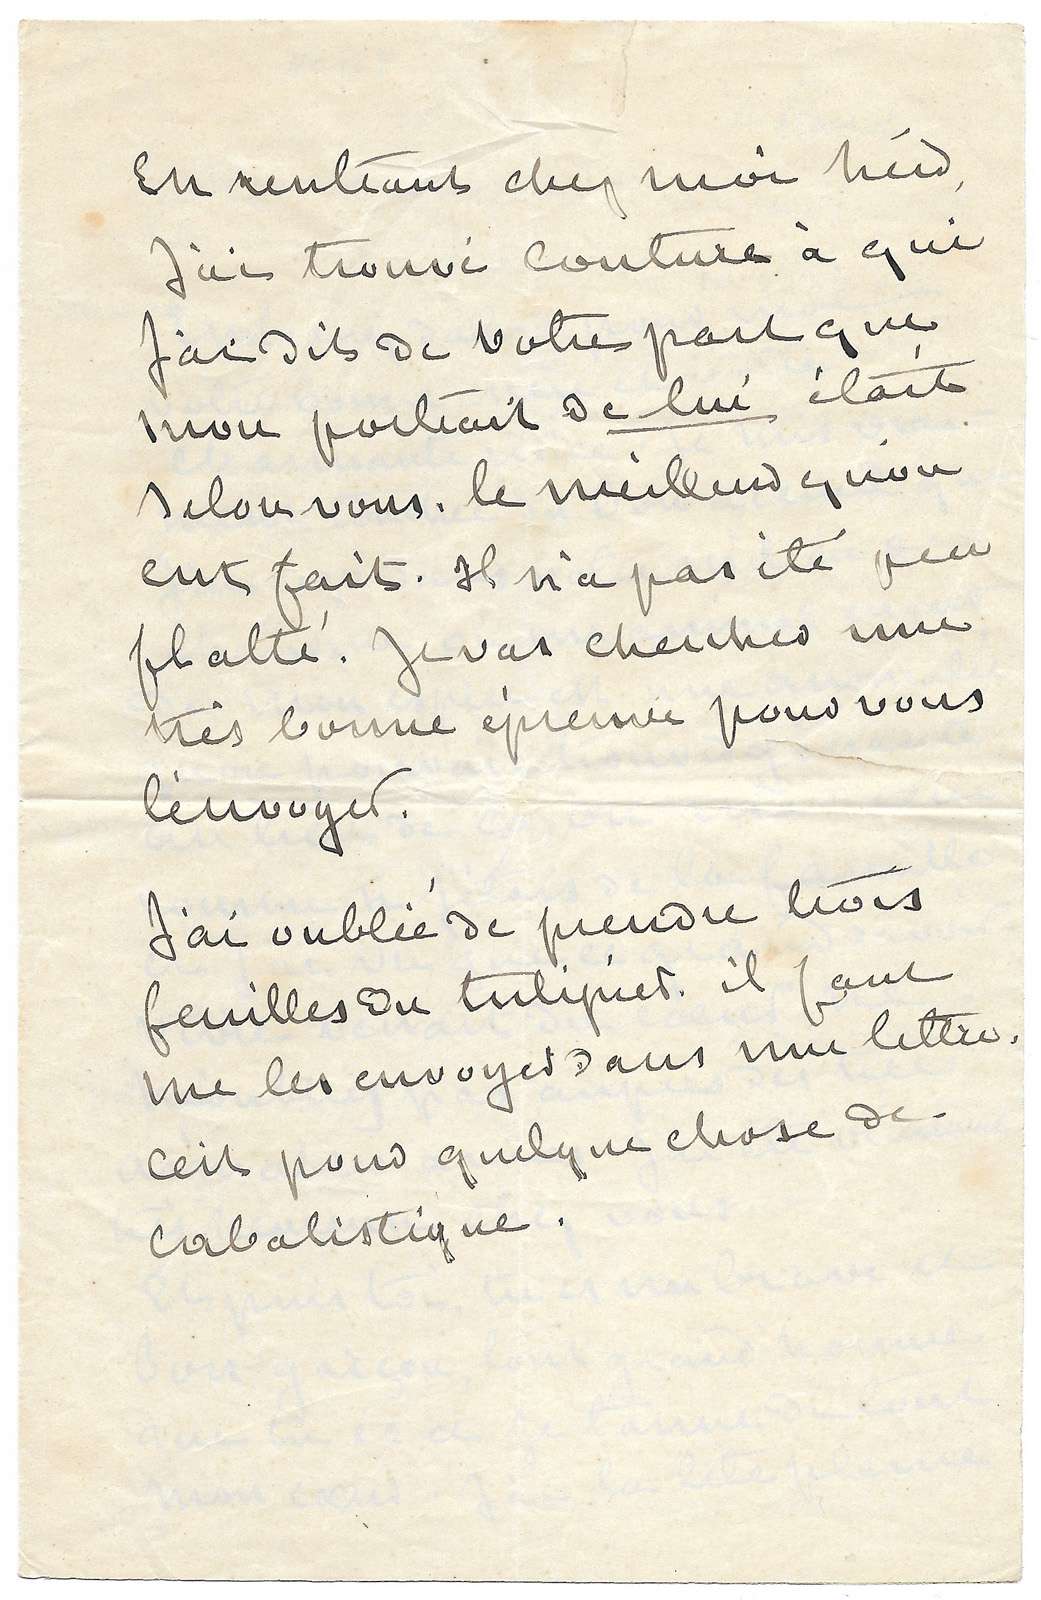 En rentrant chez moi hier,
J'ai trouvé Couture à qui
J'ai dit de votre part que
mon portrait de lui était
selon vous, le meilleur qu'on
eut fait. Il n'a pas été peu
flatté. Je vas chercher une
très bonne épreuve pour vous
l'envoyer.
J'ai oublié de prendre trois
feuilles du tulipier. il faut
me les envoyer dans une lettre.
C'est pour quelque chose de
cabalistique.